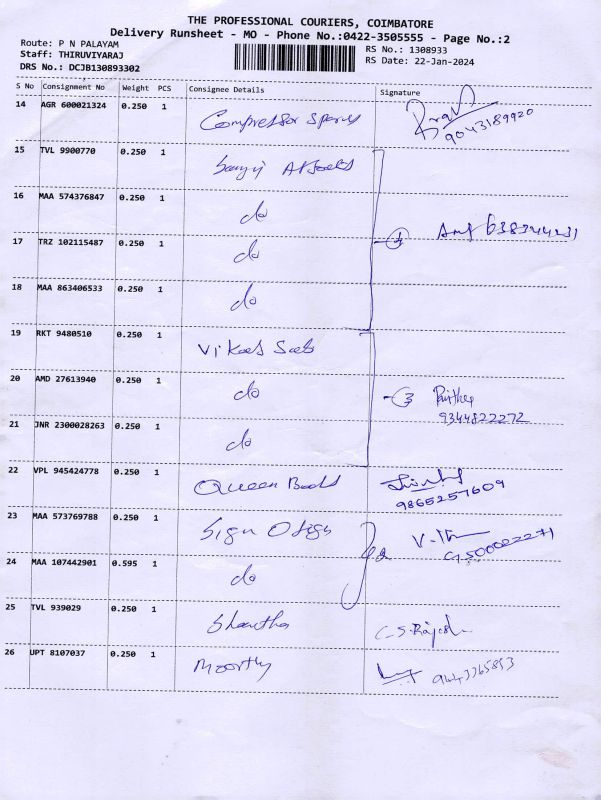 THE PROFESSIONAL COURIERS, COIMBATORE
Delivery Runsheet - MO - Phone No.:0422-3505555 - Page No.:2
Route: P N PALAYAM
Staff: THIRUVIYARAJ
DRS No.: DCJB130893302
RS No.: 1308933
RS Date: 22-Jan-2024
S No Consignment No Weight PCS Consignee Details Signature
14 AGR 600021324 0.250 1 Compressor Spares
9043189920
15 TVL 9900770 0.250 1
16 MAA 574376847 0.250 1 do
17 TRZ 102115487 0.250 1 do 4
18 MAA 863406533 0.250 1 do
19 RKT 9480510 0.250 1 Vikas
20 AMD 27613940 0.250 1 do 3
9344822272
21 JNR 2300028263 0.250 1 do
22 VPL 945424778 0.250 1 Queen
9865257609
23 MAA 573769788 0.250 1 Sign
24 MAA 107442901 0.595 1 do 2
25 TVL 939029 0.250 1 Shantha C.S.Rajesh
26 UPT 8107037 0.250 1 Moorthy 9443365853